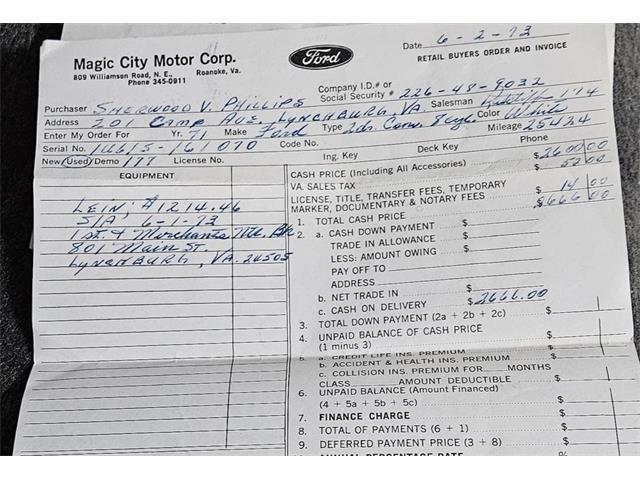 Magic City Motor Corp.
809 Williamson Road, N. E., Roanoke, Va.
Phone 345-0911
Ford
Date 6-2-73
RETAIL BUYERS ORDER AND INVOICE
Company I.D.# or
Social Security # 226-48-9032
Purchaser SHERWOOD V. PHILLIPS
Address 701 CAMP AVE, LYNCHBURG, VA. Salesman 174
Enter My Order For Yr. 71 Make Ford Type 2dr. Conv. 8cyl. Color White
Serial No. 1U61S-161070 Code No. Mileage 25424
New (Used) Demo/ 177 License No. Ing. Key Deck Key Phone
EQUIPMENT
LEIN; $1214.46
S/A, 6-1-73
1st. & Merchants Ntl. Bk
801 Main St.
LYNCHBURG, VA. 24505
CASH PRICE (Including All Accessories) $2600.00
VA. SALES TAX $ 52.00
LICENSE, TITLE, TRANSFER FEES, TEMPORARY
MARKER, DOCUMENTARY & NOTARY FEES $ 14.00
1. TOTAL CASH PRICE $2666.00
2. a. CASH DOWN PAYMENT $
TRADE IN ALLOWANCE $
LESS: AMOUNT OWING $
PAY OFF TO
ADDRESS
b. NET TRADE IN $
c. CASH ON DELIVERY $2666.00
3. TOTAL DOWN PAYMENT (2a + 2b + 2c) $
4. UNPAID BALANCE OF CASH PRICE
(1 minus 3) $
a. CREDIT LIFE INS. PREMIUM $
b. ACCIDENT & HEALTH INS. PREMIUM $
c. COLLISION INS. PREMIUM FOR MONTHS
CLASS AMOUNT DEDUCTIBLE $
6. UNPAID BALANCE (Amount Financed)
(4 + 5a + 5b + 5c) $
7. FINANCE CHARGE $
8. TOTAL OF PAYMENTS (6 + 1) $
9. DEFERRED PAYMENT PRICE (3 + 8) $
ANNUAL PERCENTAGE RATE %